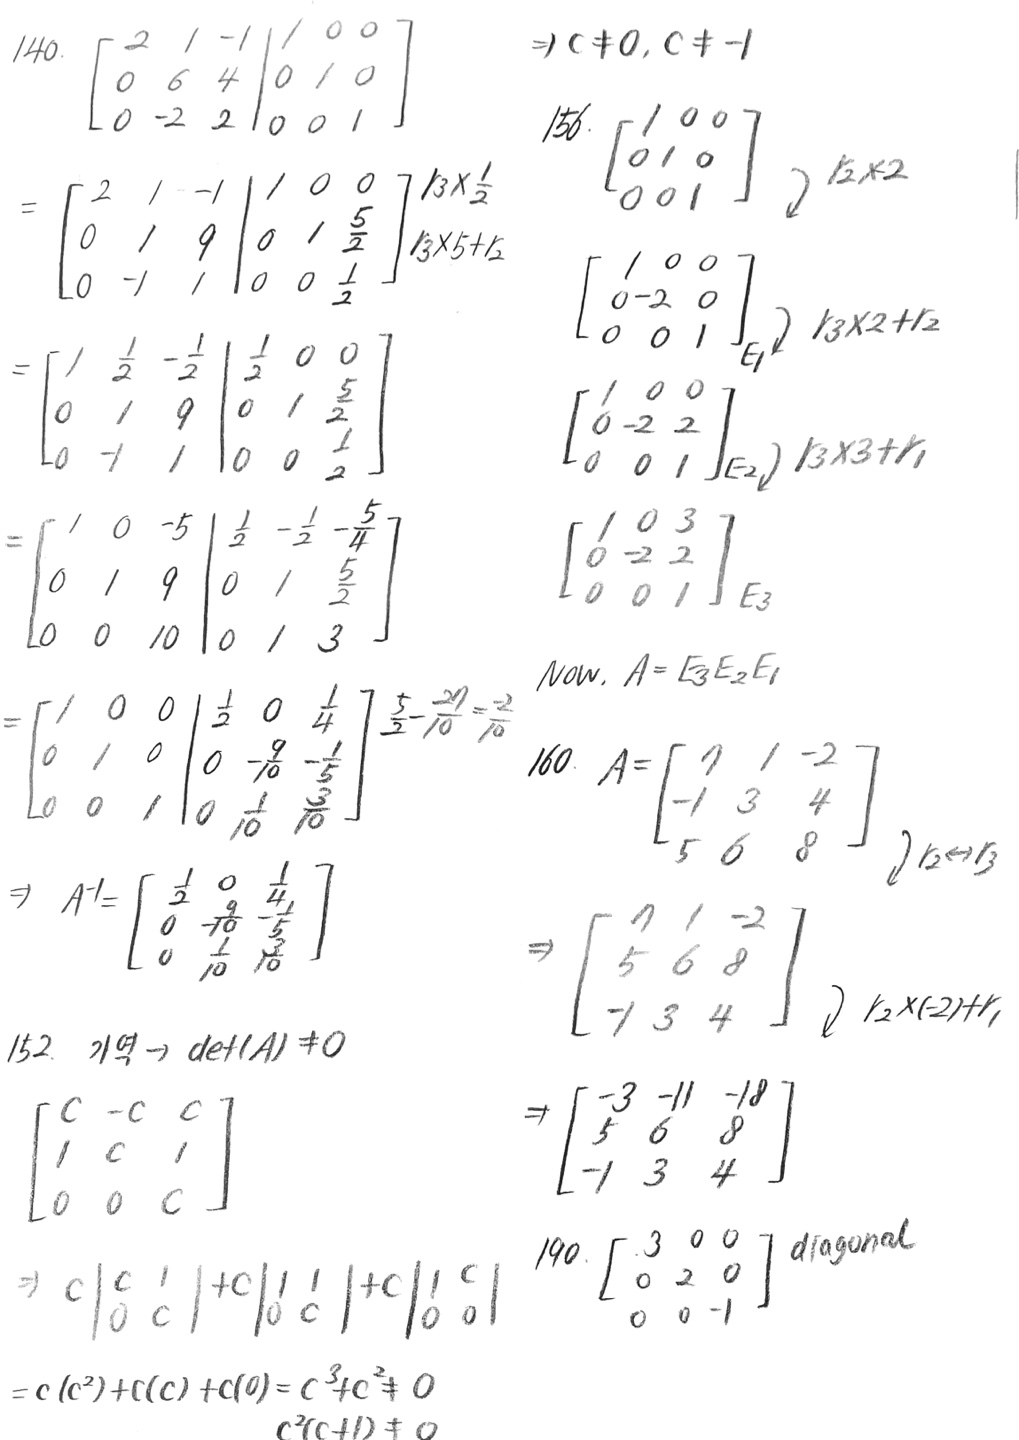 140. [ 2 1 -1 | 1 0 0 ]
0 6 4 | 0 1 0
0 -2 2 | 0 0 1
= [ 2 1 -1 | 1 0 0 ] r3×1/2
0 1 9 | 0 1 5/2 r3×5+r2
0 -1 1 | 0 0 1/2
= [ 1 1/2 -1/2 | 1/2 0 0 ]
0 1 9 | 0 1 5/2
0 -1 1 | 0 0 1/2
= [ 1 0 -5 | 1/2 -1/2 -5/4 ]
0 1 9 | 0 1 5/2
0 0 10 | 0 1 3
= [ 1 0 0 | 1/2 0 1/4 ] 5/2 - 27/10 = -2/10
0 1 0 | 0 -9/10 -1/5
0 0 1 | 0 1/10 3/10
⇒ A⁻¹ = [ 1/2 0 1/4 ]
0 -9/10 -1/5
0 1/10 3/10
152. 가역 → det(A) ≠ 0
[ C -C C ]
1 C 1
0 0 C
⇒ C | C 1 | + C | 1 1 | + C | 1 C |
0 C | 0 C | 0 0
= C(C²) + C(C) + C(0) = C³+C² ≠ 0
C²(C+1) ≠ 0
⇒ C ≠ 0, C ≠ -1
156. [ 1 0 0 ]
0 1 0 r2×2
0 0 1
[ 1 0 0 ]
0 -2 0
0 0 1 E1 r3×2+r2
[ 1 0 0 ]
0 -2 2
0 0 1 E2 r3×3+r1
[ 1 0 3 ]
0 -2 2
0 0 1 E3
Now, A = E3E2E1
160. A = [ 7 1 -2 ]
-1 3 4
5 6 8 r2↔r3
⇒ [ 7 1 -2 ]
5 6 8
-1 3 4 r2×(-2)+r1
⇒ [ -3 -11 -18 ]
5 6 8
-1 3 4
190. [ 3 0 0 ] diagonal
0 2 0
0 0 -1